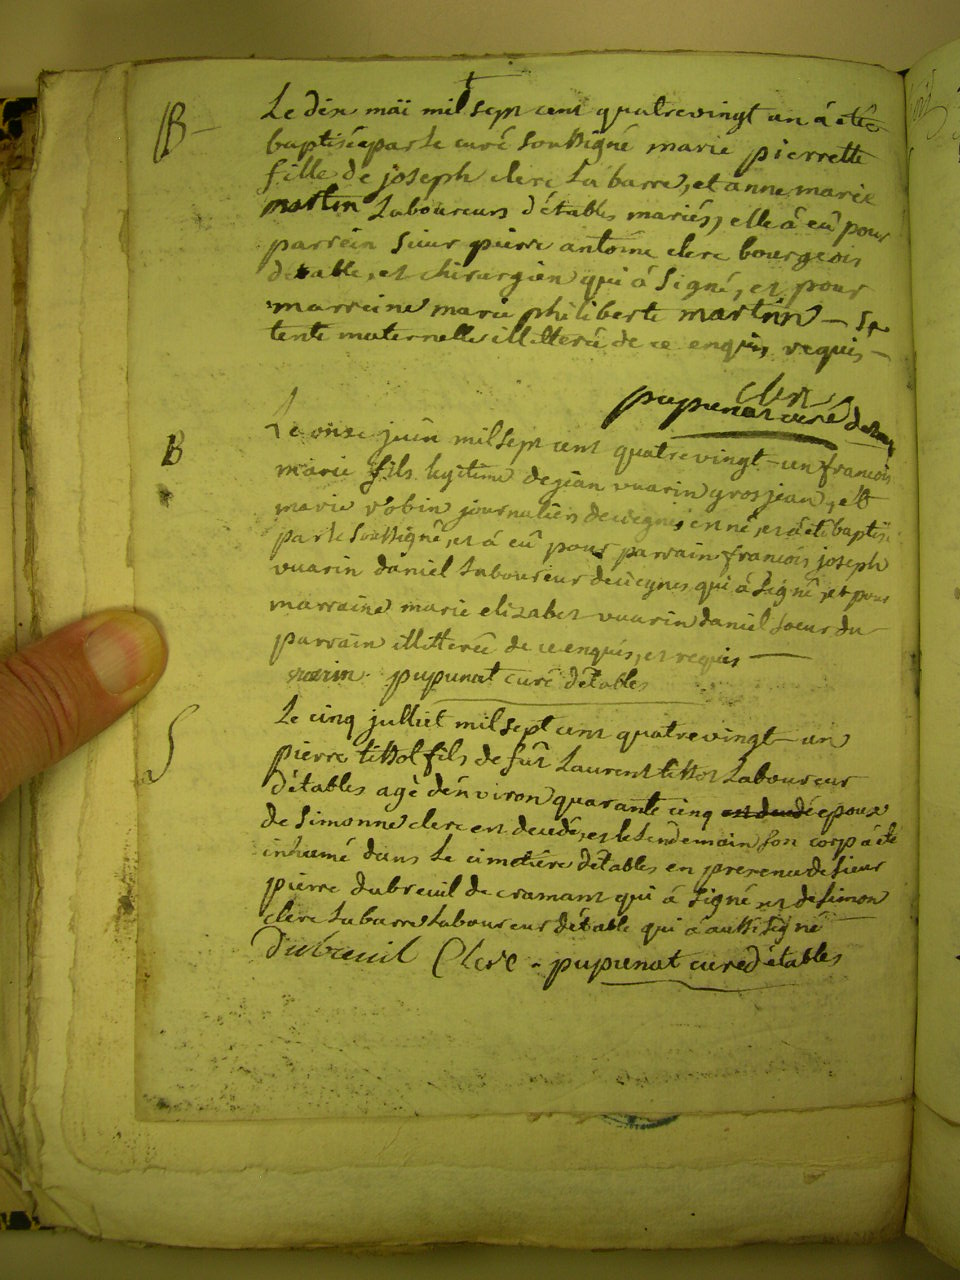 B
Le dix maï mil sept cent quatrevingt un á eté
baptisée par le curé soussigné marie pierrette
fille de joseph clerc La barre, et anne marie
martin Laboureurs d'étables mariés, elle á eû pour
parrein sieur pierre antoine clerc bourgeois
détable, et chirurgien qui á signé, et pour
marreine marie philiberte martin — sa
tente maternelle illitteré de ce enquis, requis —
clerc
pupunat curé
B
Le onze juin mil sept cent quatrevingt—un francois
marie fils legitime de jean vuarin grosjean, et
marie robin journaliers est né, et á eté baptisé
par le soussigné, et á eû pour parrain francois joseph
vuarin daniel Laboureur qui á signé, et pour
marraine marie elizabet vuarin daniel soeur du
parrain illitterée de ce enquis, et requis —
vuarin pupunat curé détables
S
Le cinq julliet mil sept cent quatrevingt—un
pierre tissot fils de fût Laurent tissot Laboureur
d'étables agé d'énviron quarante cinq epoux
de simonne clerc est decedé, et le lendemain son corp á eté
inhumé dans Le cimetiére détables en presence de sieur
pierre dubreuil de cramant qui á signé et de simon
clerc Labarre Laboureur détable qui á aussi signé
Dubreuil Clerc . pupunat curé d'étables